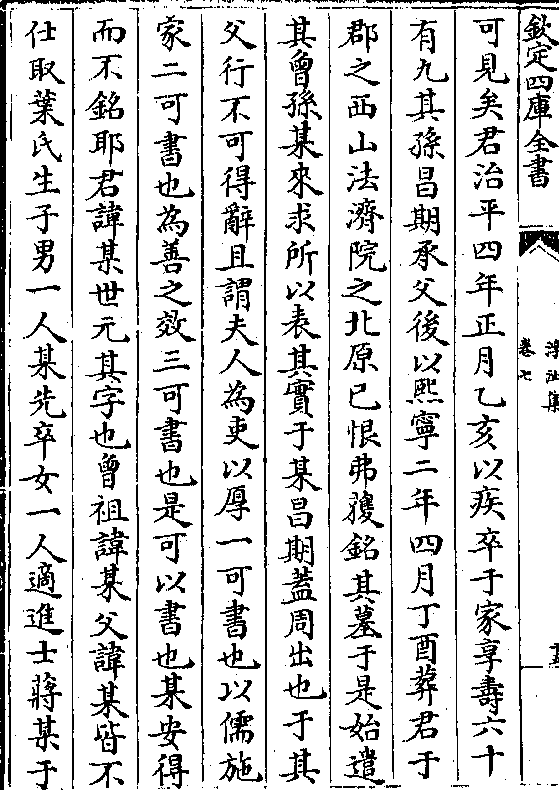 欽定四庫全書
浮沚集
卷七
可見矣君治平四年正月乙亥以疾卒于家享壽六十
有九其孫昌期承父後以熙寧二年四月丁酉葬君于
郡之西山法濟院之北原已恨弗獲銘其墓于是始遣
其曾孫某來求所以表其實于某昌期蓋周出也于其
父行不可得辭且謂夫人為吏以厚一可書也以儒施
家二可書也為善之效三可書也是可以書也某安得
而不銘耶君諱某世元其字也曾祖諱某父諱某皆不
仕取葉氏生子男一人某先卒女一人適進士蔣某于